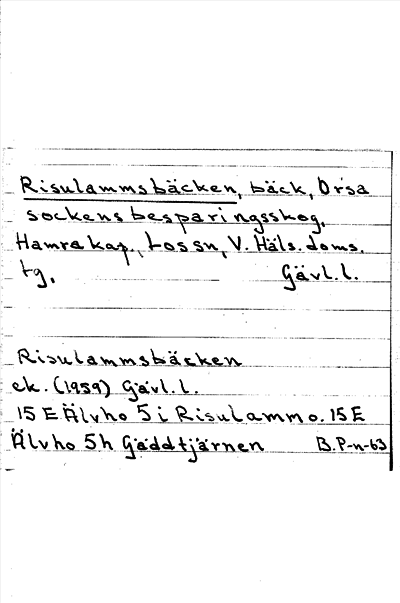 Risulammsbäcken, bäck, Orsa
sockens besparingsskog,
Hamra kap., Los sn, V. Häls. doms.
tg, Gävl. l.
Risulammsbäcken
ek. (1959) Gävl. l.
15 E Älvho 5 i Risulammo. 15 E
Älvho 5h Gäddtjärnen B. P-n-63